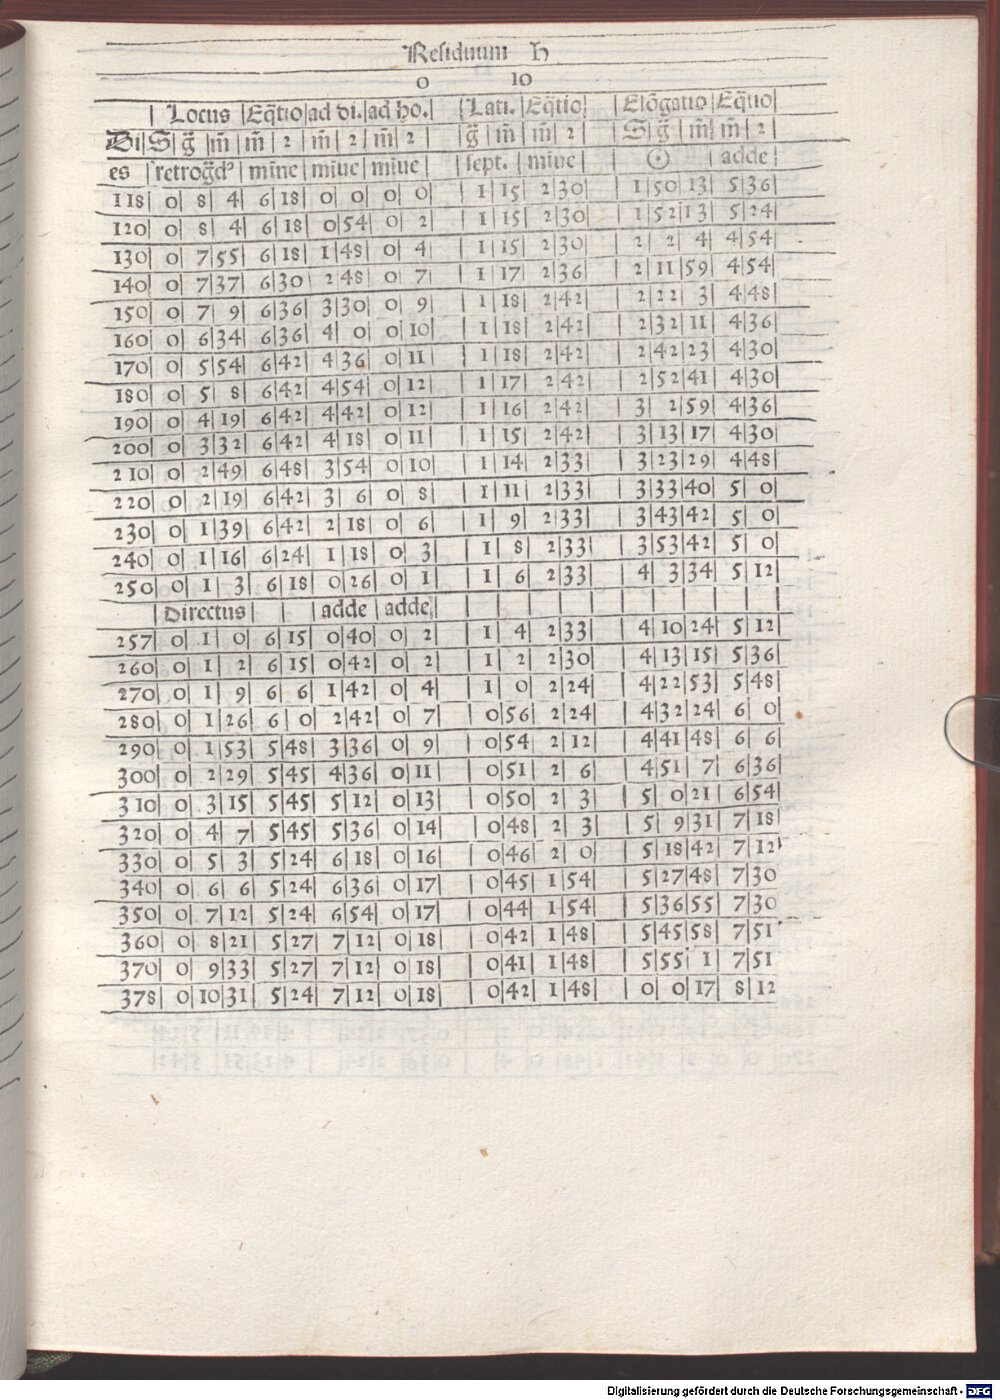 Residuum ♄
0 10
| Locus |Eq̃tio|ad di.|ad ho.| |Lati.|Eq̃tio| |Elõgatio|Eq̃tio|
Di|S|g̃|m̃|m̃|2|m̃|2|m̃|2| g̃|m̃|m̃|2| |S|g̃|m̃|m̃|2|
es |retrog̃dꝰ|minꝰ|minꝰ|minꝰ| |sept.|minꝰ| |☉| |adde|
118| 0| 8| 4| 6|18| 0| 0| 0| 0| | 1|15| 2|30| | 1|50|13| 5|36
120| 0| 8| 4| 6|18| 0|54| 0| 2| | 1|15| 2|30| | 1|52|13| 5|24
130| 0| 7|55| 6|18| 1|48| 0| 4| | 1|15| 2|30| | 2| 2| 4| 4|54
140| 0| 7|37| 6|30| 2|48| 0| 7| | 1|17| 2|36| | 2|11|59| 4|54
150| 0| 7| 9| 6|36| 3|30| 0| 9| | 1|18| 2|42| | 2|22| 3| 4|48
160| 0| 6|34| 6|36| 4| 0| 0|10| | 1|18| 2|42| | 2|32|11| 4|36
170| 0| 5|54| 6|42| 4|36| 0|11| | 1|18| 2|42| | 2|42|23| 4|30
180| 0| 5| 8| 6|42| 4|54| 0|12| | 1|17| 2|42| | 2|52|41| 4|30
190| 0| 4|19| 6|42| 4|42| 0|12| | 1|16| 2|42| | 3| 2|59| 4|36
200| 0| 3|32| 6|42| 4|18| 0|11| | 1|15| 2|42| | 3|13|17| 4|30
210| 0| 2|49| 6|48| 3|54| 0|10| | 1|14| 2|33| | 3|23|29| 4|48
220| 0| 2|19| 6|42| 3| 6| 0| 8| | 1|11| 2|33| | 3|33|40| 5| 0
230| 0| 1|39| 6|42| 2|18| 0| 6| | 1| 9| 2|33| | 3|43|42| 5| 0
240| 0| 1|16| 6|24| 1|18| 0| 3| | 1| 8| 2|33| | 3|53|42| 5| 0
250| 0| 1| 3| 6|18| 0|26| 0| 1| | 1| 6| 2|33| | 4| 3|34| 5|12
|Directus| | |adde|adde|
257| 0| 1| 0| 6|15| 0|40| 0| 2| | 1| 4| 2|33| | 4|10|24| 5|12
260| 0| 1| 2| 6|15| 0|42| 0| 2| | 1| 2| 2|30| | 4|13|15| 5|36
270| 0| 1| 9| 6| 6| 1|42| 0| 4| | 1| 0| 2|24| | 4|22|53| 5|48
280| 0| 1|26| 6| 0| 2|42| 0| 7| | 0|56| 2|24| | 4|32|24| 6| 0
290| 0| 1|53| 5|48| 3|36| 0| 9| | 0|54| 2|12| | 4|41|48| 6| 6
300| 0| 2|29| 5|45| 4|36| 0|11| | 0|51| 2| 6| | 4|51| 7| 6|36
310| 0| 3|15| 5|45| 5|12| 0|13| | 0|50| 2| 3| | 5| 0|21| 6|54
320| 0| 4| 7| 5|45| 5|36| 0|14| | 0|48| 2| 3| | 5| 9|31| 7|18
330| 0| 5| 3| 5|24| 6|18| 0|16| | 0|46| 2| 0| | 5|18|42| 7|12
340| 0| 6| 6| 5|24| 6|36| 0|17| | 0|45| 1|54| | 5|27|48| 7|30
350| 0| 7|12| 5|24| 6|54| 0|17| | 0|44| 1|54| | 5|36|55| 7|30
360| 0| 8|21| 5|27| 7|12| 0|18| | 0|42| 1|48| | 5|45|58| 7|51
370| 0| 9|33| 5|27| 7|12| 0|18| | 0|41| 1|48| | 5|55| 1| 7|51
378| 0|10|31| 5|24| 7|12| 0|18| | 0|42| 1|48| | 0| 0|17| 8|12
Digitalisierung gefördert durch die Deutsche Forschungsgemeinschaft - DFG